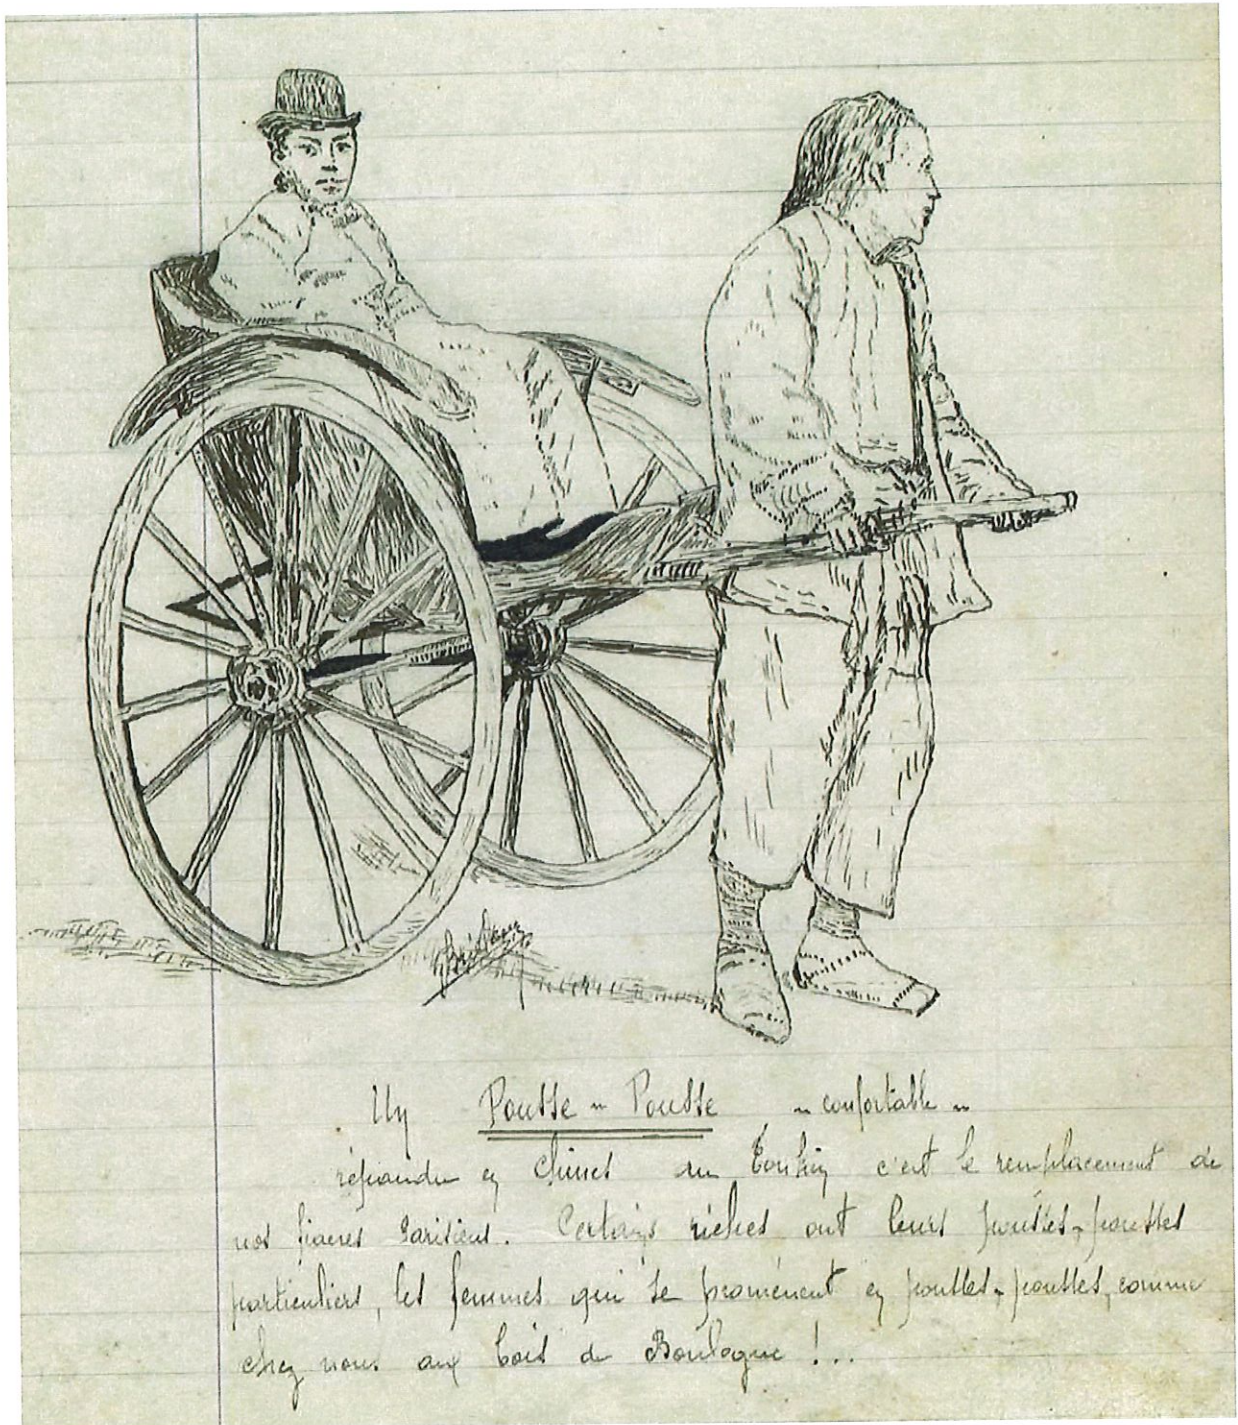 Un Pousse - Pousse - confortable -
répandu en Chines au Tonkin c'est le remplacement de
nos fiacres Parisiens. Certains riches ont leurs pousses-pousses
particuliers, les femmes qui se promènent en pousses-pousses, comme
chez nous aux bois de Boulogne !...